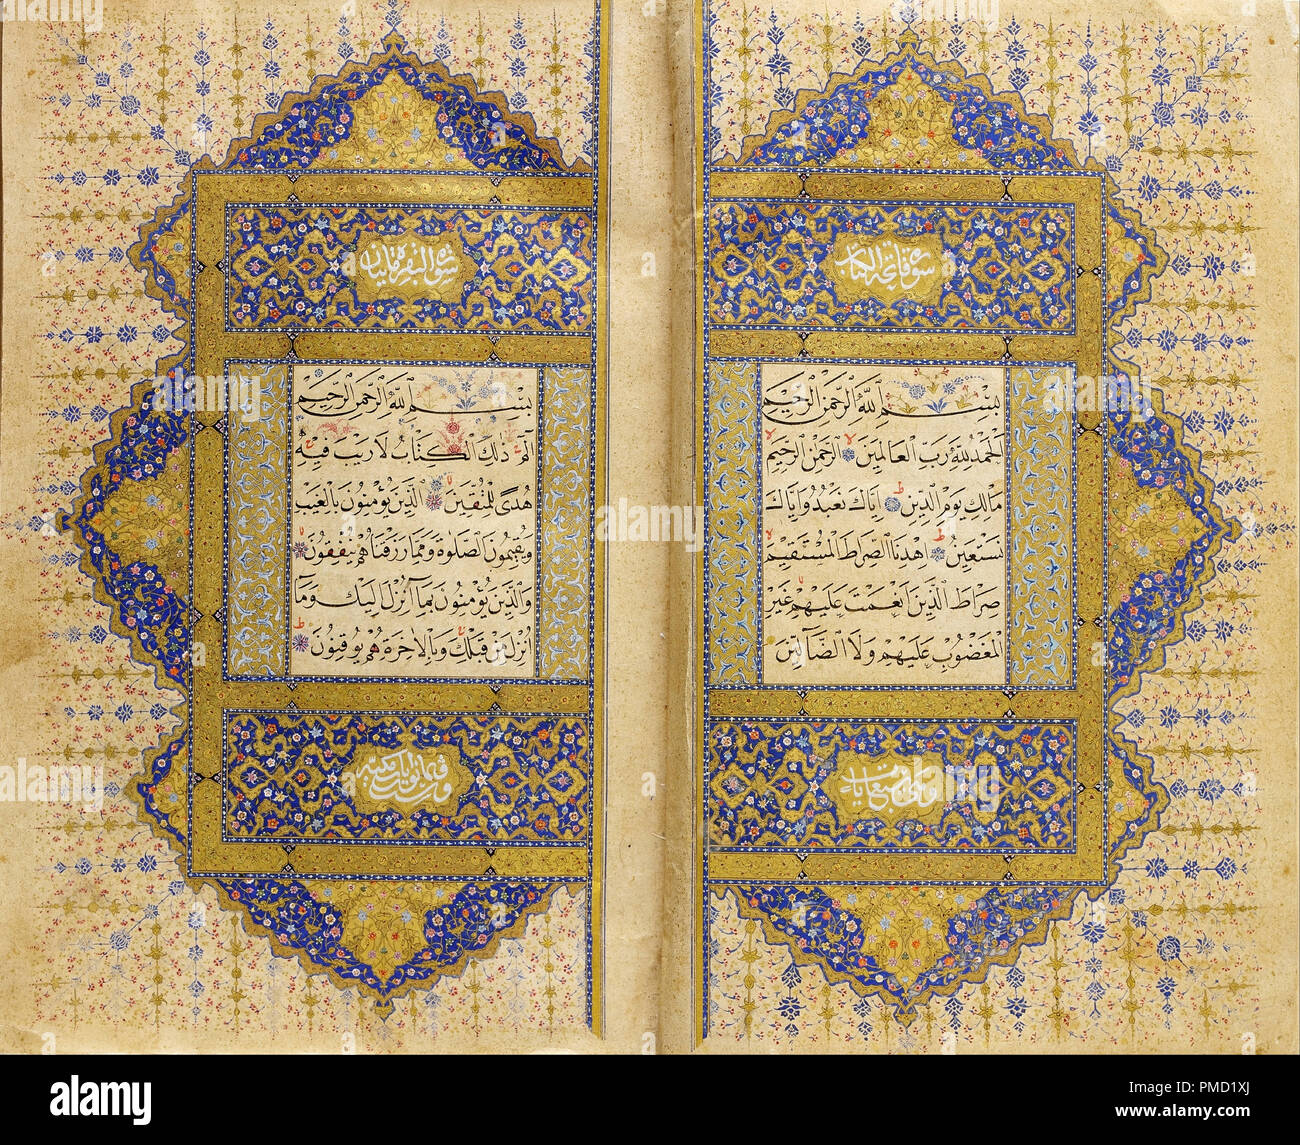 سورة فاتحة الكتاب
بسم الله الرحمن الرحيم
الحمد لله رب العالمين الرحمن الرحيم
مالك يوم الدين اياك نعبد واياك
نستعين اهدنا الصراط المستقيم
صراط الذين انعمت عليهم غير
المغضوب عليهم ولا الضالين
وهي سبع ايات
سورة البقرة مائتان
بسم الله الرحمن الرحيم
الم ذلك الكتاب لا ريب فيه
هدى للمتقين الذين يؤمنون بالغيب
ويقيمون الصلوة ومما رزقناهم ينفقون
والذين يؤمنون بما انزل اليك وما
انزل من قبلك وبالاخرة هم يوقنون
alamy
alamy
Image ID: PMD1XJ
www.alamy.com